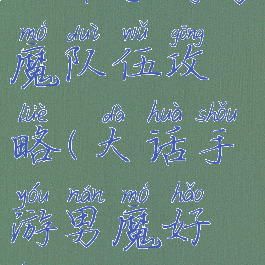 mó duì wǔ gōng
魔队伍攻
lüè dà huà shǒu
略(大话手
yóu nán mó hǎo
游男魔好